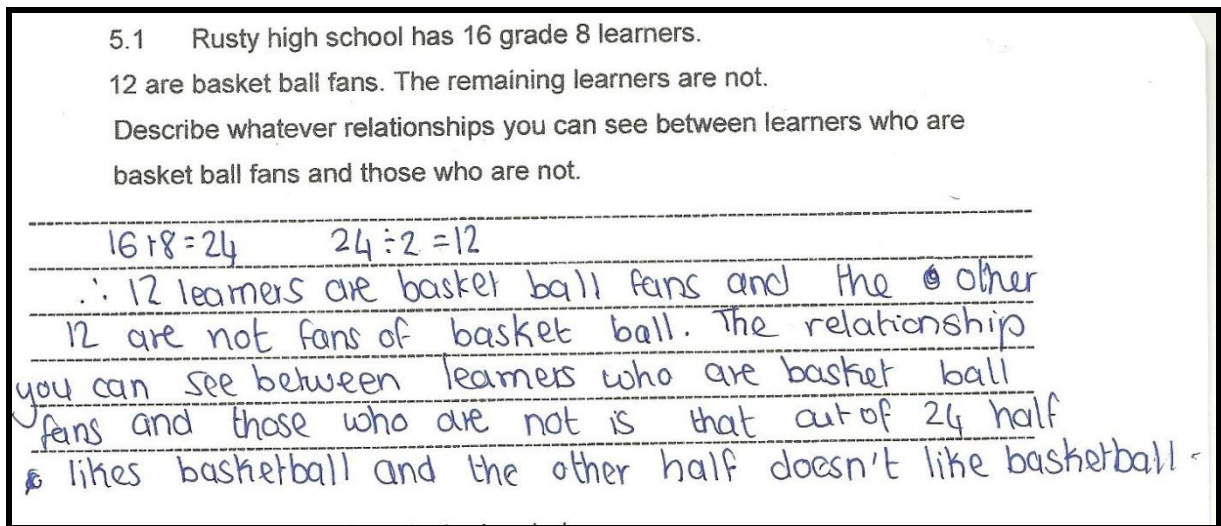 5.1 Rusty high school has 16 grade 8 learners.
12 are basket ball fans. The remaining learners are not.
Describe whatever relationships you can see between learners who are
basket ball fans and those who are not.
16+8=24 24÷2=12
∴ 12 learners are basket ball fans and the other
12 are not fans of basket ball. The relationship
you can see between learners who are basket ball
fans and those who are not is that out of 24 half
likes basketball and the other half doesn't like basketball.